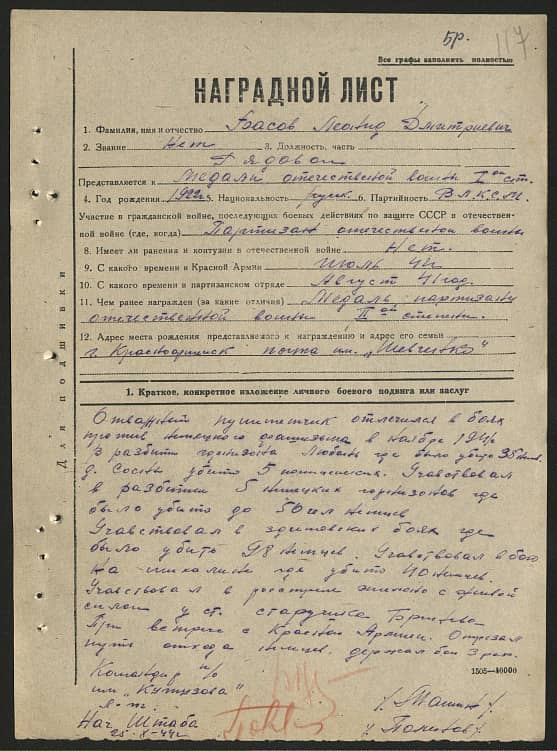 бр. 117
Все графы заполнять полностью
НАГРАДНОЙ ЛИСТ
1. Фамилия, имя и отчество Басов Леонид Дмитриевич
2. Звание Нет 3. Должность, часть
Рядовой
Представляется к Медали отечественной войны I ой ст.
4. Год рождения 1922г. Национальность русск. 6. Партийность В.Л.К.С.М.
Участие в гражданской войне, последующих боевых действиях по защите СССР и отечествен-
ной войне (где, когда) Партизан отечественной войны
8. Имеет ли ранения и контузии в отечественной войне Нет.
9. С какого времени в Красной Армии Июль 41г
10. С какого времени в партизанском отряде Август 41 год.
11. Чем ранее награжден (за какие отличия) Медаль „партизану
отечественной войны II ой степени.
12. Адрес места рождения представляемого к награждению и адрес его семьи
г. Красноармейск почта им. „Шевченко"
Для подшивки
1. Краткое, конкретное изложение личного боевого подвига или заслуг
Отважный пулиметчик отлечился в боях
против немецкого фашизма в ноябре 194
В разбити горнизона Любань где было убито 35 нем.
д. Сосны убито 5 полицейск. Учавствовал
в разбитии 5 немецких горнизонов где
было убито до 50 чел немцев
Учавствовал в боях где
было убить 98 немцев. Учавствовал в бою
на где убито 40 немцев.
Учавствовал в эшелона с живой
силой у ст. старушка
При встрече с Красной Армией. Отрезал
путь отхода немцев. держал бой 3 дня.
1505—10000
Командир п/о
им. „Кутузова"
Нач. Штаба
25-8-44г